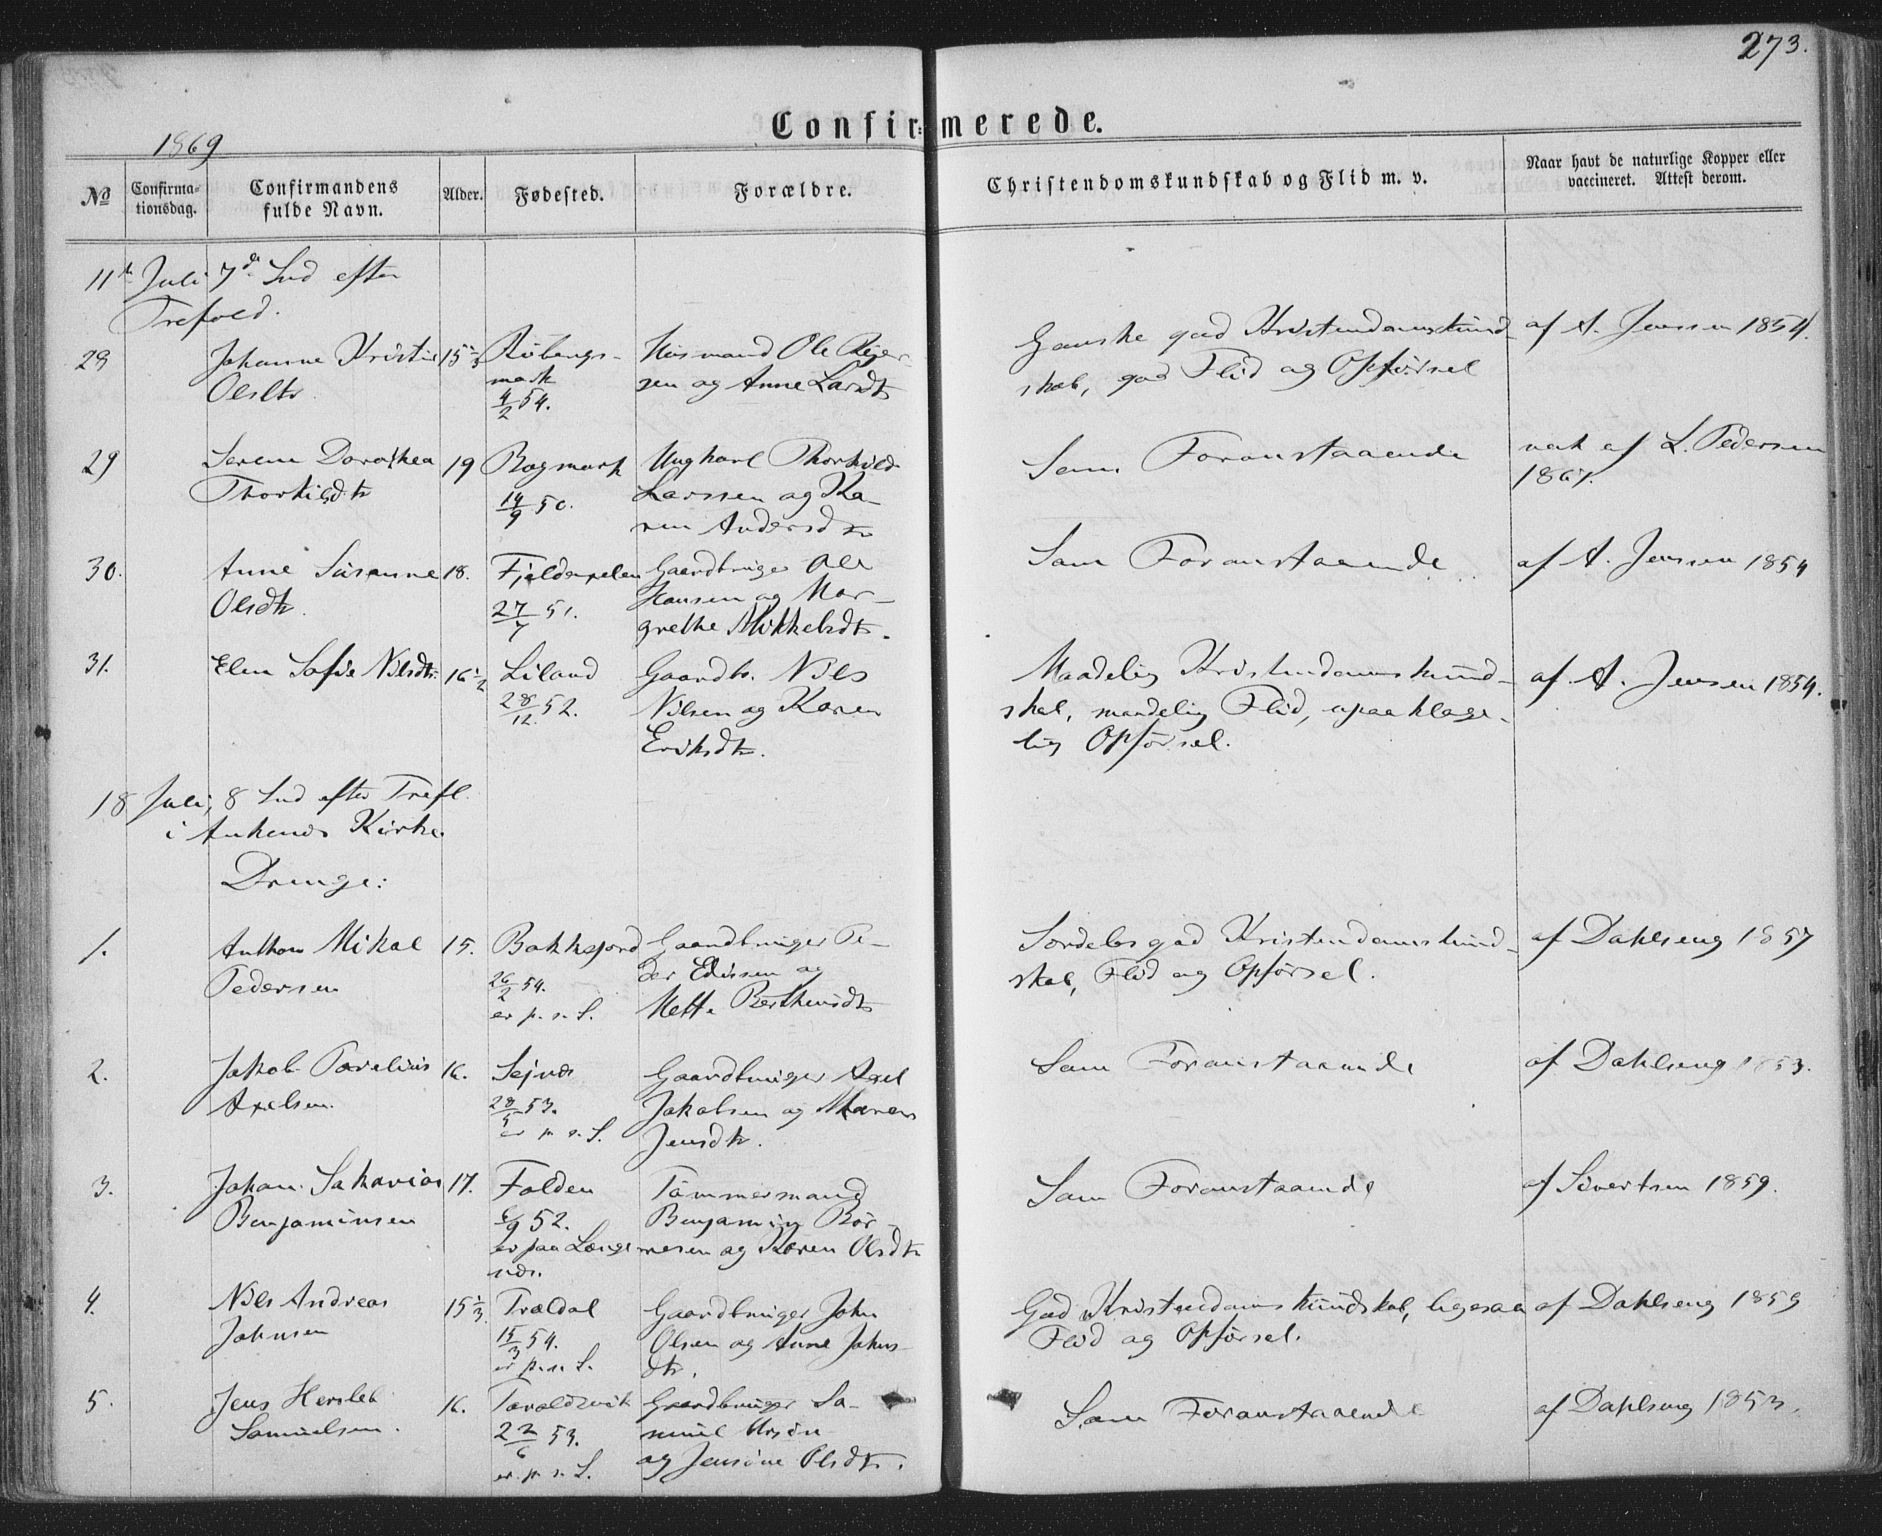 273.
Confirmerede.
1869
No
Confirmationsdag.
Confirmandens fulde Navn.
Alder.
Fødested.
Forældre.
Christendomskundskab og Flid m. v.
Naar havt de naturlige Kopper eller vaccineret. Attest derom.
11te Juli 7de Snd efter
Trefold.
29 Johanne Kristine 15 1/3
Olsdtr.
mark
4/2 54.
Husmand Ole
sen og Anne Larsdtr
Ganske god Kristendomskund-
skab, god Flid og Opførsel
af A. Jensen 1854.
29 Serene Dorothea 19 Bogmark
Thorkildtr
14/9 50.
Ungkarl Thorkild
Larssen og Ka-
ren Andersdtr
Som Foranstaaende
vak af L. Pedersen
1867.
30. Anne Susanne 18.
Olsdtr.
27/7 51.
Gaardbruger Ole
Hansen og Mar-
grethe Mikkelsdtr.
Som Foranstaaende
af A. Jensen 1854
31. Elen Sofie Nilsdtr. 16 1/2 Liland
28/12 52.
Gaardbr. Nils
Nilsen og Karen
Eriksdtr.
Maadelig Kristendomskund-
skab, maadelig Flid, upaaklage-
lig Opførsel.
af A. Jensen 1854.
18 Juli, 8 Snd efter Trefl.
i Ankenes Kirke
Drenge:
1. Anthon Mikal 15.
Pedersen
Bakkejord
26/2 54.
er p. s. S.
Gaardbruger Pe-
der Edissen og
Mette Bertheusdtr
Særdeles god Kristendomskund-
skab, Flid og Opførsel.
af Dahlseng 1857
2. Jakob Parelius 16.
Axelsen.
Sejnes
28/5 53.
er p. s. S.
Gaardbruger Axel
Jakobsen og Maren
Jensdtr.
Som Foranstaaende
af Dahlseng 1853.
3. Johan Sakarias 17.
Benjaminsen
Folden
6/9 52.
er paa Længe
næs.
Tømmermand
Benjamin Rør-
mesen og Karen Olsdtr
Som Foranstaaende
af Sivertsen 1859.
4. Nils Andreas 15 1/3
Johnsen
Trældal
15/3 54.
er p. s. S.
Gaardbruger John
Olsen og Anne Johns-
dtr.
God Kristendomskundskab, ligesaa
Flid og Opførsel.
af Dahlseng 1859
5. Jens Hersleb 16.
Samuelsen.
Taraldsvik
22/6 53.
er p. s. S.
Gaardbruger Sa-
muel
og Jensine Olsdtr.
Som Foranstaaende
af Dahlseng 1853.